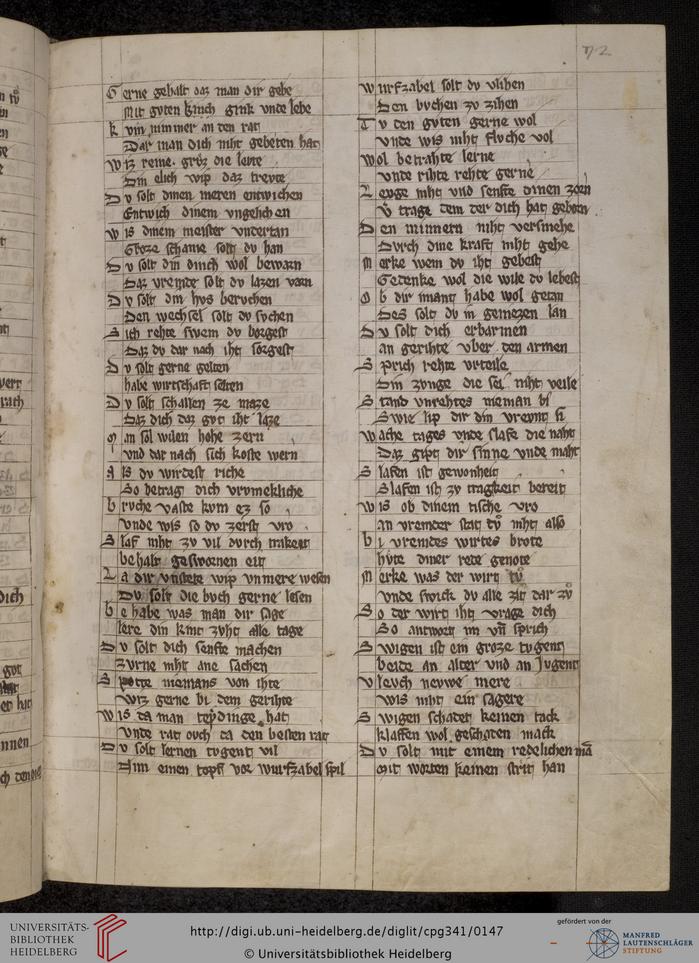 72
Gerne gehalt daz man dir gebe
Mit guten kinden gink vnde lebe
kvm nimmer an den rat
Dar man dich niht gebeten hat
Wiz reine. grvz die levte
Din elich wip daz trevte
Dv solt dinen meren entwichen
Entwich dinem vngelichen
Wis dinem meister vndertan
Groze schame solt dv han
Dv solt din dinch wol bewarn
Daz vremde solt dv lazen varn
Dv solt din hvs beruchen
Den wechsel solt dv svchen
Sich rehte swem dv borgest
Daz dv dar nach iht sorgest
Dv solt gerne gelten
habe wirtschaft selten
Dv solt schallen ze maze
Daz dich daz gvt iht laze
Man sol wilen hohe zern
vnd dar nach sich koste wern
Als dv wirdest riche
So betrag dich vrvmekliche
bruche vaste kvm ez so
vnde wis so dv zerst vro
Slaf niht zv vil dvrch trakeit
behalt geswornen eit
La dir vnstete wip vnmere wesen
Dv solt die buch gerne lesen
behabe was man dir sage
lere din kint zvht alle tage
Dv solt dich senfte machen
zvrne niht ane sachen
Spotte niemans von ihte
Wiz gerne bi dem gerihte
Wis da man teydinge hat
vnde rat ouch da den besten rat
Dv solt lernen tvgent vil
Nim einen topf vor wurfzabel spil
Wurfzabel solt dv vlihen
Den buchen zv zihen
Tv den guten gerne wol
vnde wis niht flvche vol
Wol betrahte lerne
vnde rihte rehte gerne
Levge niht vnd senfte dinen zorn
vertrage dem der dich hat geborn
Den minnern niht versmehe
Dvrch dine kraft niht gehe
Merke wem dv iht gebest
Gedenke wol die wile dv lebest
Ob dir imant habe wol getan
Des solt dv in geniezen lan
Dv solt dich erbarmen
an gerihte vber den armen
Sprich rehte vrteile
Din zvnge die sei niht veile
Stand vnrehtes nieman bi
Swie lip dir din vrevnt si
Wache tages vnde slafe die naht
Daz gibt dir sinne vnde maht
Slafen ist gewonheit
Slafen ist zv tragkeit bereit
Wis ob dinem tische vro
an vremder stat tv niht also
bi vremdes wirtes brote
hvte diner rede genote
Merke was der wirt tv
vnde swick dv alle zit dar zv
So der wirt iht vrage dich
So antwort im vn sprich
Swigen ist ein groze tvgent
beide an alter vnd an Jvgent
vlevch nevwe mere
Wis niht ein sagere
Swigen schadet keinen tack
klaffen wol geschaden mack
Dv solt mit einem redelichen man
Mit worten keinen strit han
UNIVERSITÄTS-
BIBLIOTHEK
HEIDELBERG
http://digi.ub.uni-heidelberg.de/diglit/cpg341/0147
© Universitätsbibliothek Heidelberg
gefördert von der
MANFRED
LAUTENSCHLÄGER
STIFTUNG